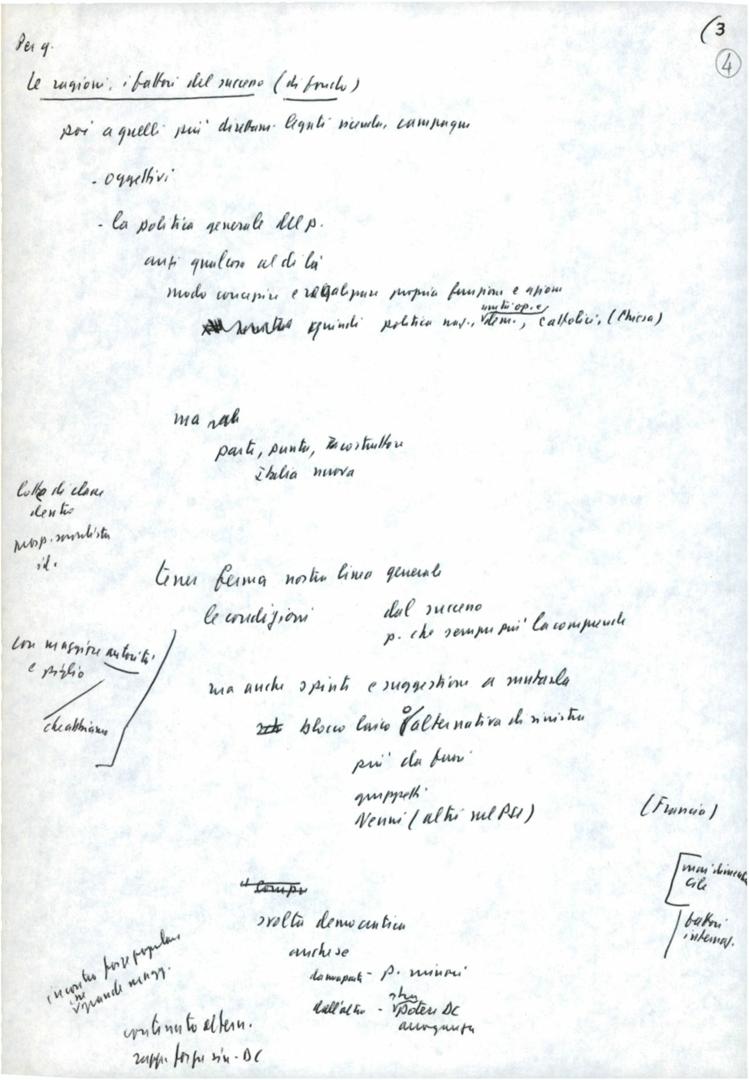 (3
4
Per q.
le ragioni, i fattori del successo (di fondo)
poi a quelli più direttam. legati vicenda, campagna
- oggettivi
- la politica generale del p.
anzi qualcosa al di là
modo concepire e propria funzione e azione
unità op. e
quindi politica naz., dem., cattolici, (Chiesa)
ma
parte, punto, ricostruttore
Italia nuova
lotta di classe
dentro
id.
tener ferma nostra linea generale
le condizioni dal successo
p. che sempre più la comprende
con maggiore autorità
e piglio
che abbiamo
ma anche spinte e suggestione a mutarla
blocco laico o alternativa di sinistra
più da fuori
gruppetti
Nenni (altri nel PSI)
(Francia)
mai dimentic.
Cile
fattori
internaz.
svolta democratica
anche se
da una parte - p. minori
dall'altra - potere DC
arroganza
incontro forze popolari
ne grande magg.
contenuto altern.
rapp. forze sin. - DC